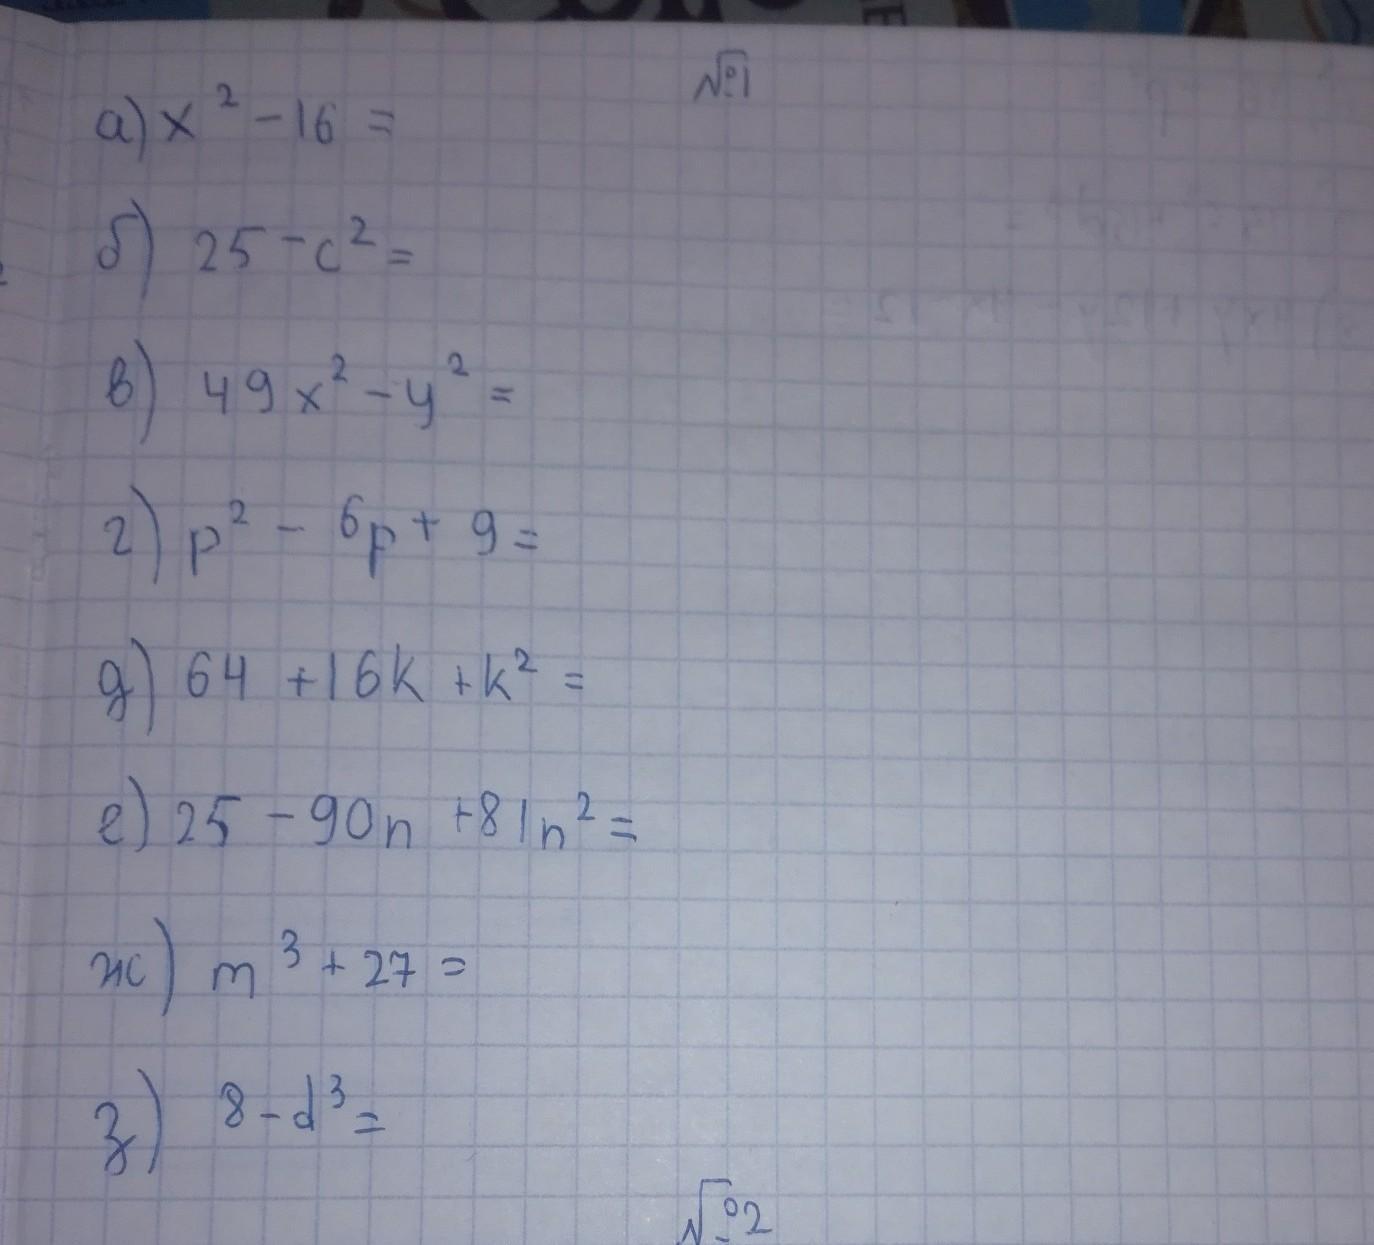 №1
а) x² - 16 =
б) 25 - c² =
в) 49x² - y² =
г) p² - 6p + 9 =
д) 64 + 16k + k² =
е) 25 - 90n + 81n² =
ж) m³ + 27 =
з) 8 - d³ =
№2